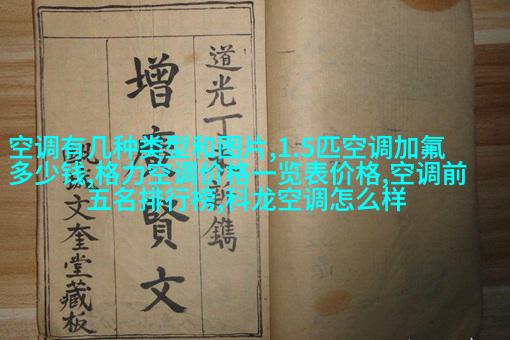 空调有几种类型和图片,1.5匹空调加氟
多少钱,格力空调价格一览表价格,空调前
五名排行榜,科龙空调怎么样
道光丁新鐫
增廣賢文
文奎堂藏板